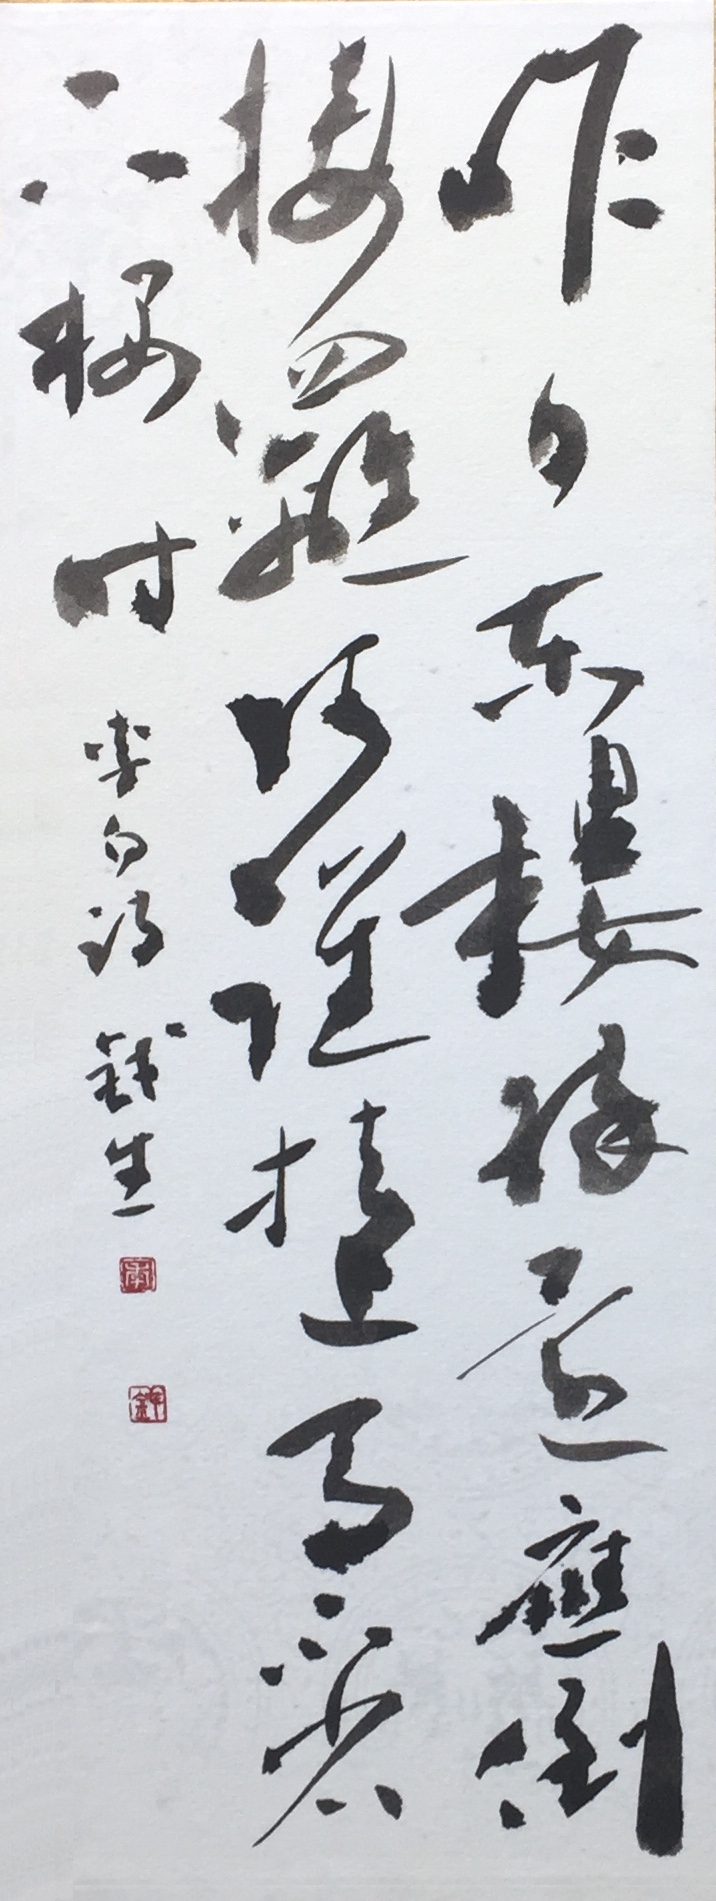 昨日東樓醉還應倒
接䍦阿誰扶上馬不省
下樓時 李白詩